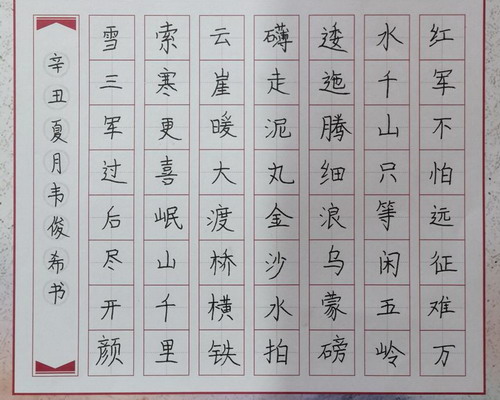 红军不怕远征难万
水千山只等闲五岭
逶迤腾细浪乌蒙磅
礴走泥丸金沙水拍
云崖暖大渡桥横铁
索寒更喜岷山千里
雪三军过后尽开颜
辛丑夏月韦俊希书